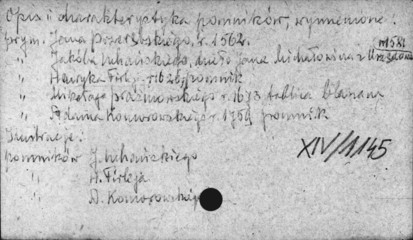 Opis i charakterystyka pomników, wymienione:
prym. Jana Przerębskiego, r. 1562.
" Jakóba Uchańskiego, dzieło Jana Michałowicza z Urzędowa
" Henryka Firleja r. 1626, pomnik
" Mikołaja Prażmowskiego r. 1673 tablica blaszana
" Adama Komorowskiego r. 1759 pomnik
Ilustracje:
pomników J. Uchańskiego
" H. Firleja
" A. Komorowskiego
XIV/1145